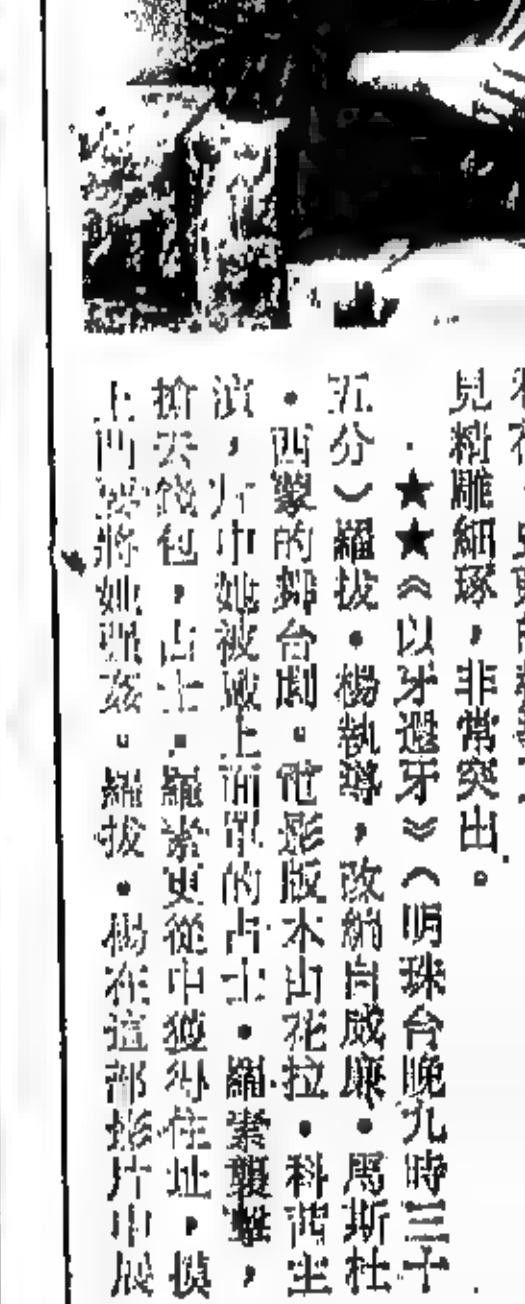 見精雕細琢，非常突出。
．★★《以牙還牙》（明珠台晚九時三十
五分）羅拔・楊執導，改編自威廉・馬斯杜
・西蒙的舞台劇。電影版本由花拉・科茜主
演，片中她被戴上面罩的占士・羅素襲擊，
搶去錢包，占士・羅素更從中獲得住址，摸
上門欲將她強姦。羅拔・楊在這部影片中展